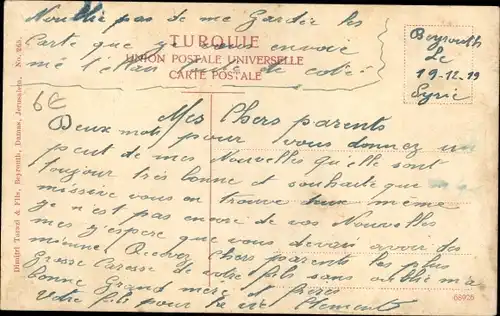 Noublie pas de me Garder les
Carte que je vous envoie
mé l'étan de coté
TURQUIE
UNION POSTALE UNIVERSELLE
CARTE POSTALE
Beyrouth
Le
19-12-19
Syrie
6€
Mes Chers parents
Deux mot pour vous donnez un
peut de mes Nouvelles qu'elle sont
toujour très bonne et souhaite que ma
missive vous en trouve de même
je n'est pas encore de vos Nouvelles
mes j'espere que vous devai avoir des
mienne Recever Chers parents les plus
Grosse Caresse de votre fils sans oublié ma
bonne Grand mère et frères
Votre fils pour la vie Clement
Dimitri Tarazi & Fils, Beyrouth, Damas, Jerusalem. No. 265.
68926